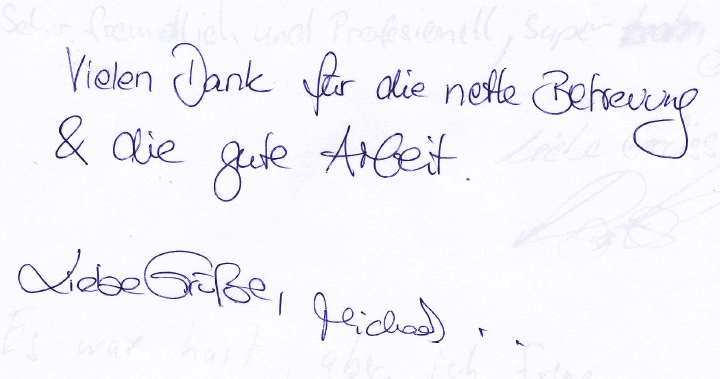 Sehr freundlich und Profesionell, super
Vielen Dank für die nette Betreuung
& die gute Arbeit.
Liebe Grüße, Michael ...
Es war hast, aber ich